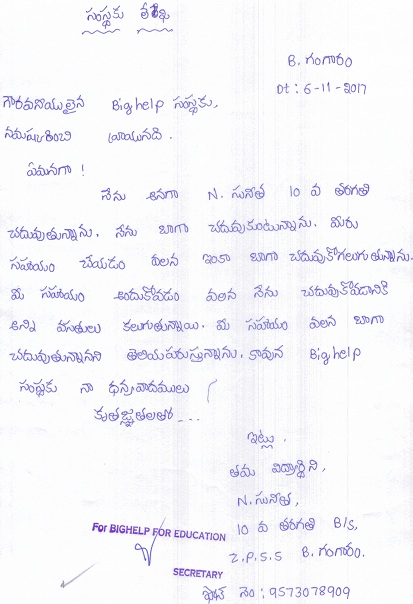 సంస్థకు లేఖ
B. గంగారం
Dt : 6-11-2017
గౌరవనీయులైన Bighelp సంస్థకు,
నమస్కరించి వ్రాయునది.
ఏమనగా !
నేను అనగా N. సునీత 10 వ తరగతి
చదువుతున్నాను. నేను బాగా చదువుకుంటున్నాను. మీరు
సహాయం చేయడం వలన ఇంకా బాగా చదువుకోగలుగుతున్నాను.
మీ సహాయం అందుకోవడం వలన నేను చదువుకోవడానికి
అన్ని వసతులు కలుగుతున్నాయి. మీ సహాయం వలన బాగా
చదువుతున్నానని తెలియపరుస్తున్నాను. కావున Bighelp
సంస్థకు నా ధన్యవాదములు
కృతజ్ఞతలతో ...
ఇట్లు.
తమ విద్యార్థిని,
N. సునీత,
10 వ తరగతి B/S,
Z.P.S.S B. గంగారం.
For BIGHELP FOR EDUCATION
SECRETARY
నెం : 9573078909